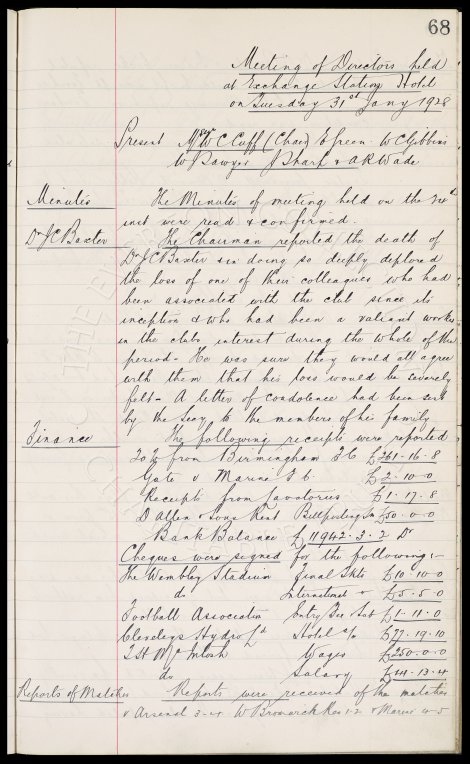 68
Meeting of Directors held
at Exchange Station Hotel
on Tuesday 31st Jany 1928
Present Messrs W C Cuff (Chair) E Green W C Gibbins
W Sawyer J Sharp & A R Wade
Minutes The Minutes of meeting held on the
inst were read & confirmed.
Dr J C Baxter The Chairman reported the death of
Dr J C Baxter & in doing so deeply deplored
the loss of one of their colleagues who had
been associated with the club since its
inception & who had been a valiant worker
in the clubs interest during the whole of the
period - He was sure they would all agree
with them that his loss would be severely
felt - A letter of condolence had been sent
by the Secy to the members of his family
Finance The following receipts were reported
from Birmingham F C £361-16-8
Gate v Marine F C. £2-10-0
Receipts from Lavatories £1-17-8
D Allen & Sons Rent Billposting £50-0-0
Bank Balance £11942-3-2 Dr
Cheques were signed for the following:-
The Wembley Stadium Final Tkts £10-10-0
do International " £5-5-0
Football Association Entry Fee £1-11-0
Cleveleys Hydro Ld Hotel a/c £77-19-10
T H McIntosh Wages £250-0-0
do Salary £44-13-4
Reports of Matches Reports were received of the matches
v Arsenal 3-4 W Bromwich Res 1-2 & Marine 4-5